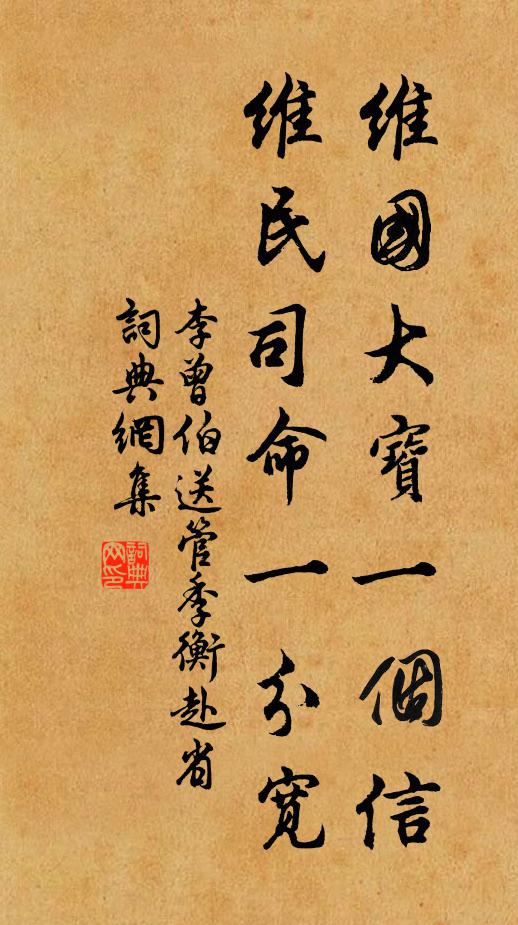 維國大寶一個信
維民司命一分寬
李曾伯送管季衡赴省
詞典網集
詞典
网印